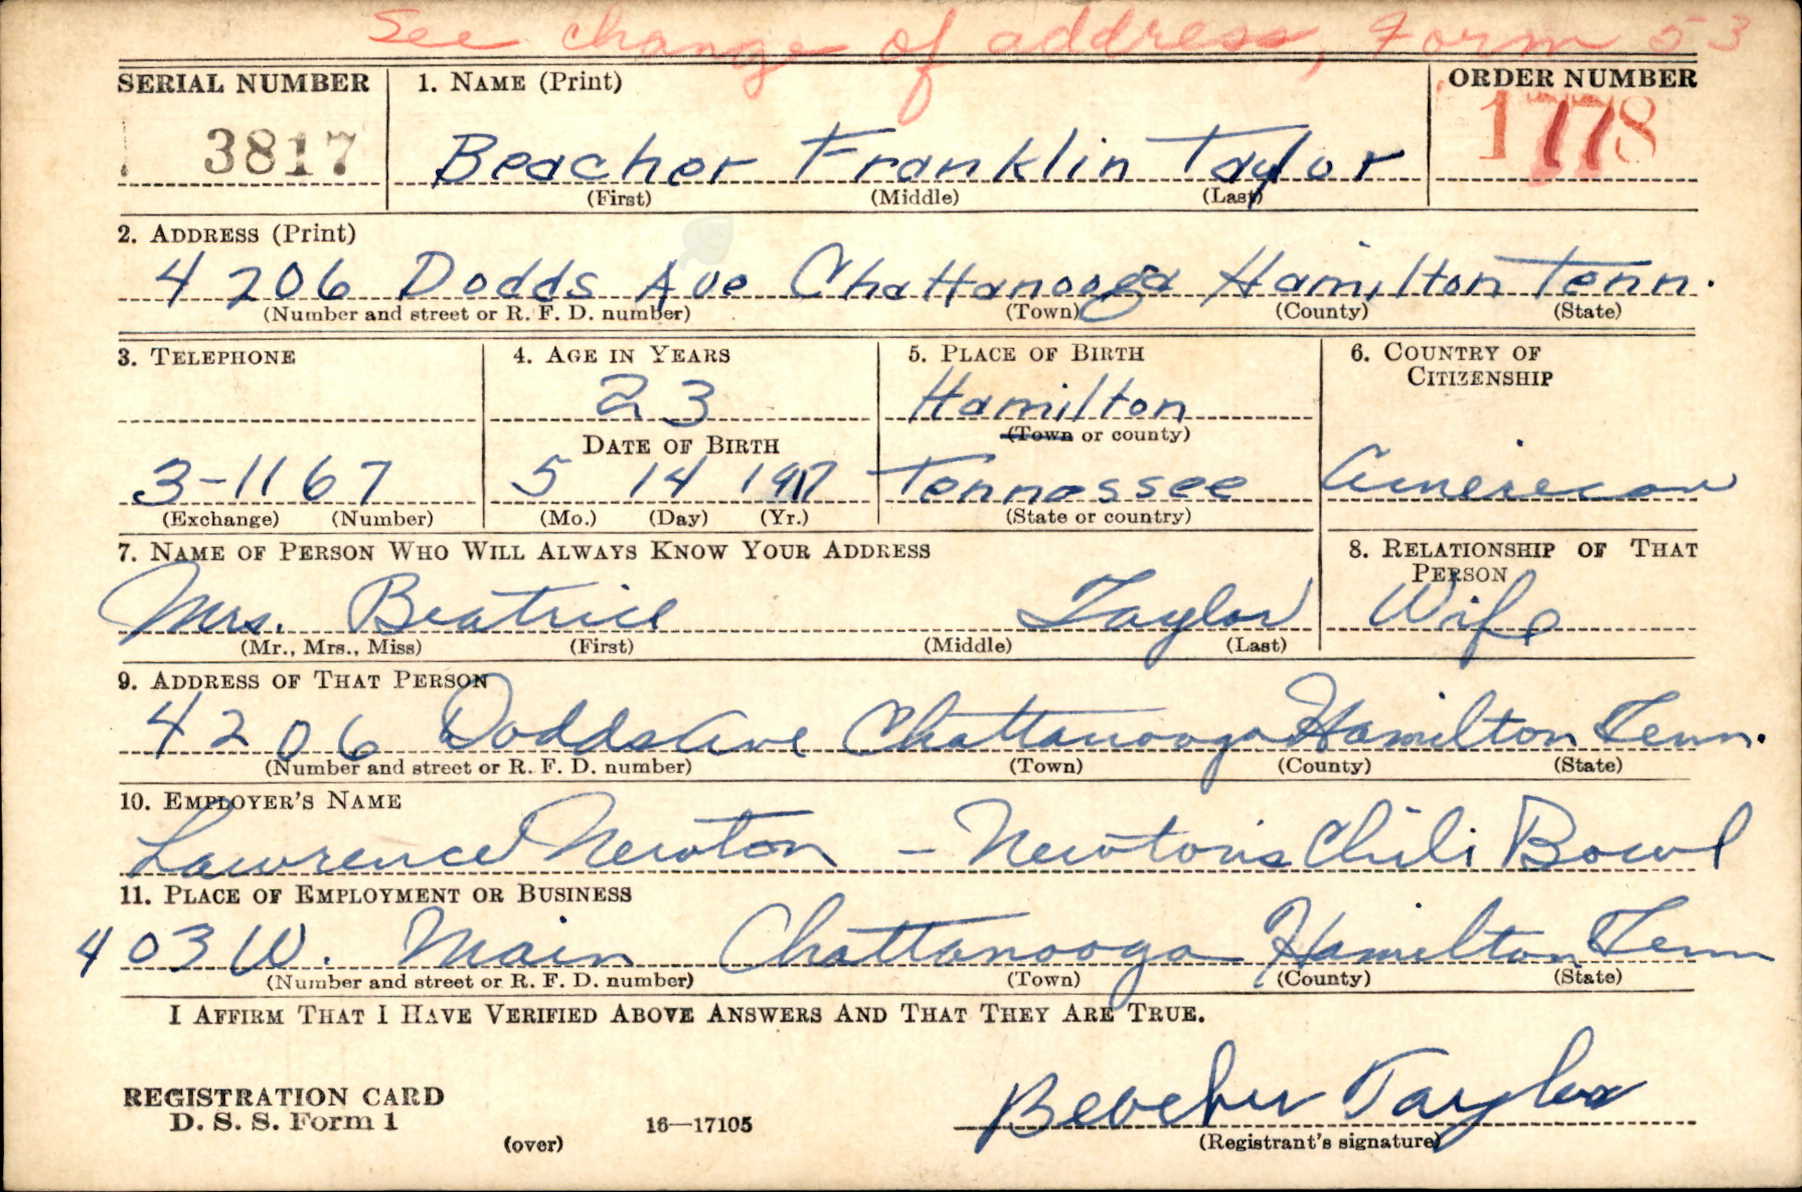 See change of address, Form 53
SERIAL NUMBER 1. NAME (Print) ORDER NUMBER
3817 Beacher Franklin Taylor 1778
(First) (Middle) (Last)
2. ADDRESS (Print)
4206 Dodds Ave Chattanooga Hamilton Tenn.
(Number and street or R. F. D. number) (Town) (County) (State)
3. TELEPHONE 4. AGE IN YEARS 5. PLACE OF BIRTH 6. COUNTRY OF CITIZENSHIP
23 Hamilton
DATE OF BIRTH (Town or county)
3-1167 5 14 1917 Tennessee American
(Exchange) (Number) (Mo.) (Day) (Yr.) (State or country)
7. NAME OF PERSON WHO WILL ALWAYS KNOW YOUR ADDRESS 8. RELATIONSHIP OF THAT PERSON
Mrs. Beatrice Taylor Wife
(Mr., Mrs., Miss) (First) (Middle) (Last)
9. ADDRESS OF THAT PERSON
4206 Dodds Ave Chattanooga Hamilton Tenn.
(Number and street or R. F. D. number) (Town) (County) (State)
10. EMPLOYER'S NAME
Lawrence Newton – Newton's Chili Bowl
11. PLACE OF EMPLOYMENT OR BUSINESS
403 W. Main Chattanooga Hamilton Tenn
(Number and street or R. F. D. number) (Town) (County) (State)
I AFFIRM THAT I HAVE VERIFIED ABOVE ANSWERS AND THAT THEY ARE TRUE.
REGISTRATION CARD
D. S. S. Form 1 16—17105 Beecher Taylor
(over) (Registrant's signature)